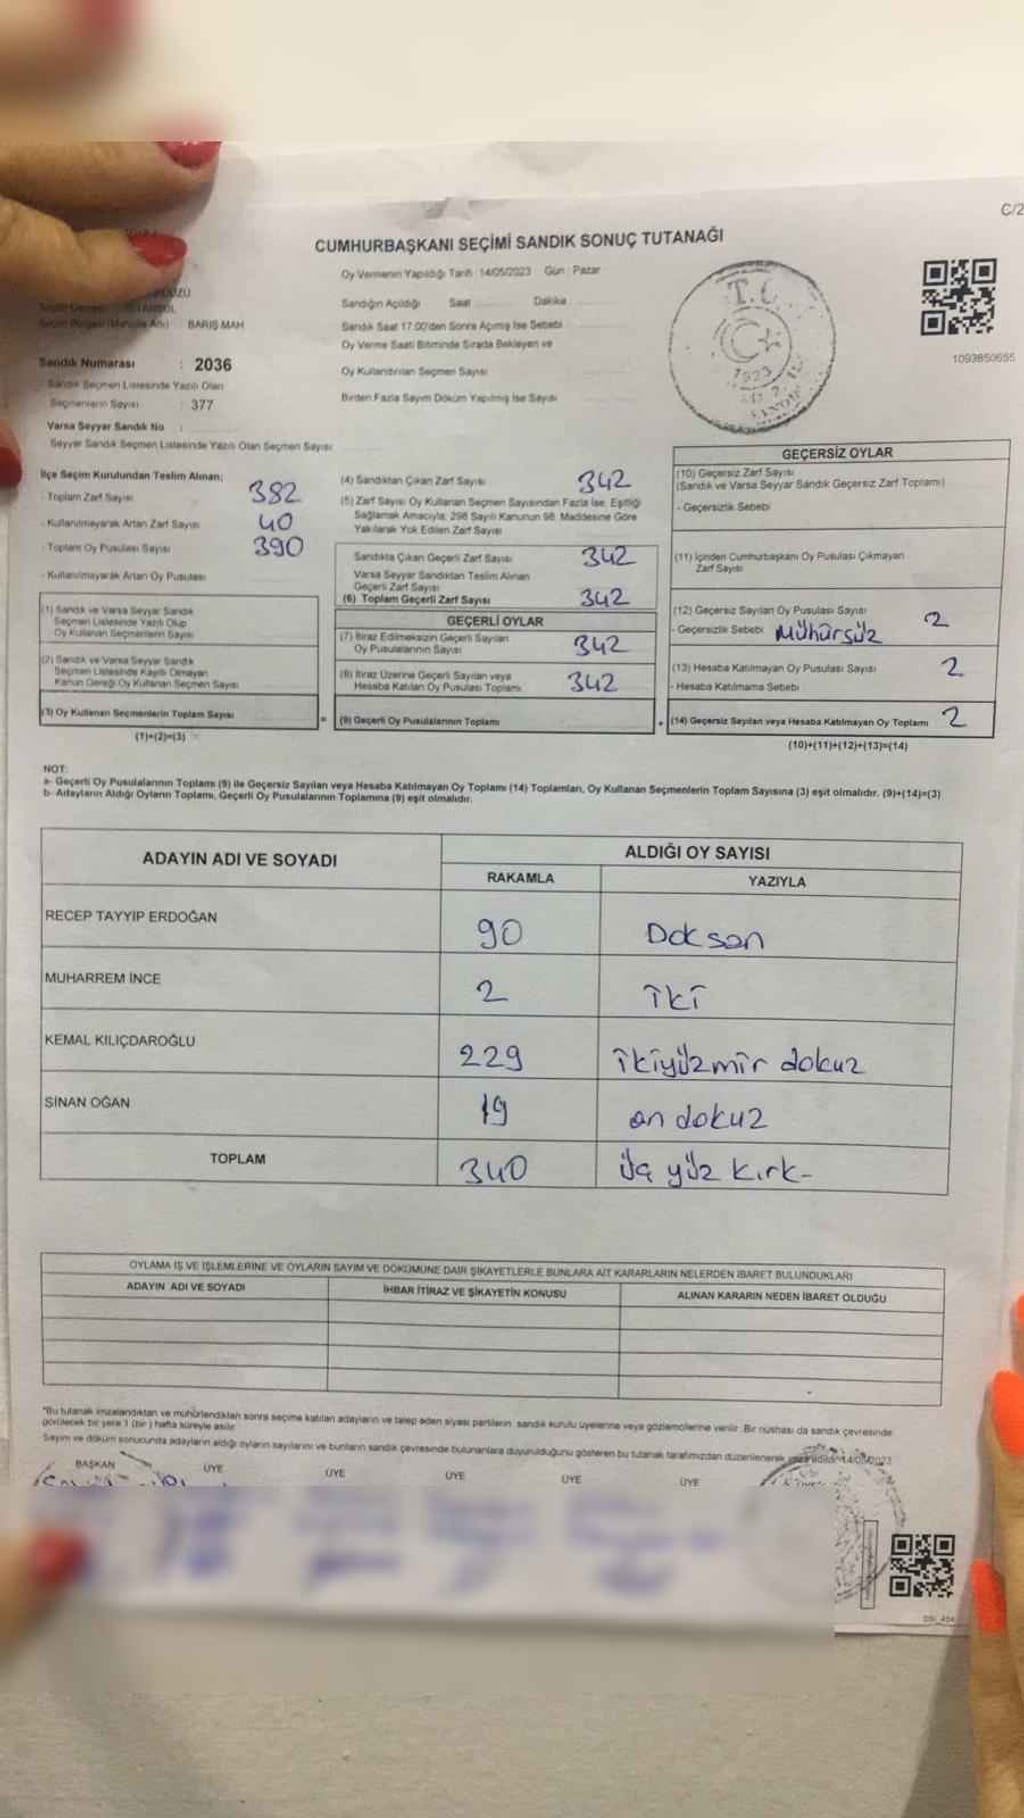 C/2
CUMHURBAŞKANI SEÇİMİ SANDIK SONUÇ TUTANAĞI
Oy Vermenin Yapıldığı Tarih : 14/05/2023 Gün : Pazar
Sandığın Açıldığı Saat Dakika
Sandık Saat 17.00'den Sonra Açılmış İse Sebebi
Oy Verme Saati Bitiminde Sırada Bekleyen ve
Oy Kullandırılan Seçmen Sayısı
Birden Fazla Sayım Döküm Yapılmış İse Sayısı
BARIŞ MAH
T.C.
1923
1093850655
Sandık Numarası : 2036
Sandık Seçmen Listesinde Yazılı Olan
Seçmenlerin Sayısı : 377
Varsa Seyyar Sandık No :
Seyyar Sandık Seçmen Listesinde Yazılı Olan Seçmen Sayısı
İlçe Seçim Kurulundan Teslim Alınan;
- Toplam Zarf Sayısı 382
- Kullanılmayarak Artan Zarf Sayısı 40
- Toplam Oy Pusulası Sayısı 390
- Kullanılmayarak Artan Oy Pusulası
(1) Sandık ve Varsa Seyyar Sandık
Seçmen Listesinde Yazılı Olup
Oy Kullanan Seçmenlerin Sayısı
(2) Sandık ve Varsa Seyyar Sandık
Seçmen Listesinde Kayıtlı Olmayan
Kanun Gereği Oy Kullanan Seçmen Sayısı
(3) Oy Kullanan Seçmenlerin Toplam Sayısı
(1)+(2)=(3)
(4) Sandıktan Çıkan Zarf Sayısı 342
(5) Zarf Sayısı Oy Kullanan Seçmen Sayısından Fazla İse, Eşitliği
Sağlamak Amacıyla; 298 Sayılı Kanunun 98. Maddesine Göre
Yakılarak Yok Edilen Zarf Sayısı
Sandıkta Çıkan Geçerli Zarf Sayısı 342
Varsa Seyyar Sandıktan Teslim Alınan
Geçerli Zarf Sayısı
(6) Toplam Geçerli Zarf Sayısı 342
GEÇERLİ OYLAR
(7) İtiraz Edilmeksizin Geçerli Sayılan
Oy Pusulalarının Sayısı 342
(8) İtiraz Üzerine Geçerli Sayılan veya
Hesaba Katılan Oy Pusulası Toplamı 342
= (9) Geçerli Oy Pusulalarının Toplamı
GEÇERSİZ OYLAR
(10) Geçersiz Zarf Sayısı
(Sandık ve Varsa Seyyar Sandık Geçersiz Zarf Toplamı)
- Geçersizlik Sebebi
(11) İçinden Cumhurbaşkanı Oy Pusulası Çıkmayan
Zarf Sayısı
(12) Geçersiz Sayılan Oy Pusulası Sayısı 2
- Geçersizlik Sebebi Mühürsüz
(13) Hesaba Katılmayan Oy Pusulası Sayısı 2
- Hesaba Katılmama Sebebi
+ (14) Geçersiz Sayılan veya Hesaba Katılmayan Oy Toplamı 2
(10)+(11)+(12)+(13)=(14)
NOT:
a- Geçerli Oy Pusulalarının Toplamı (9) ile Geçersiz Sayılan veya Hesaba Katılmayan Oy Toplamı (14) Toplamları, Oy Kullanan Seçmenlerin Toplam Sayısına (3) eşit olmalıdır. (9)+(14)=(3)
b- Adayların Aldığı Oyların Toplamı, Geçerli Oy Pusulalarının Toplamına (9) eşit olmalıdır.
ADAYIN ADI VE SOYADI
ALDIĞI OY SAYISI
RAKAMLA YAZIYLA
RECEP TAYYİP ERDOĞAN 90 Doksan
MUHARREM İNCE 2 İki
KEMAL KILIÇDAROĞLU 229 İkiyüzmir dokuz
SİNAN OĞAN 19 on dokuz
TOPLAM 340 üç yüz kırk-
OYLAMA İŞ VE İŞLEMLERİNE VE OYLARIN SAYIM VE DÖKÜMÜNE DAİR ŞİKAYETLERLE BUNLARA AİT KARARLARIN NELERDEN İBARET BULUNDUKLARI
ADAYIN ADI VE SOYADI İHBAR İTİRAZ VE ŞİKAYETİN KONUSU ALINAN KARARIN NEDEN İBARET OLDUĞU
*Bu tutanak imzalandıktan ve mühürlendikten sonra seçime katılan adayların ve talep eden siyasi partilerin, sandık kurulu üyelerine veya gözlemcilerine verilir. Bir nüshası da sandık çevresinde
görülecek bir yere 1 (bir) hafta süreyle asılır
Sayım ve döküm sonucunda adayların aldığı oyların sayılarını ve bunların sandık çevresinde bulunanlara duyurulduğunu gösteren bu tutanak tarafımızdan düzenlenerek 14/05/2023
BAŞKAN ÜYE ÜYE ÜYE ÜYE ÜYE